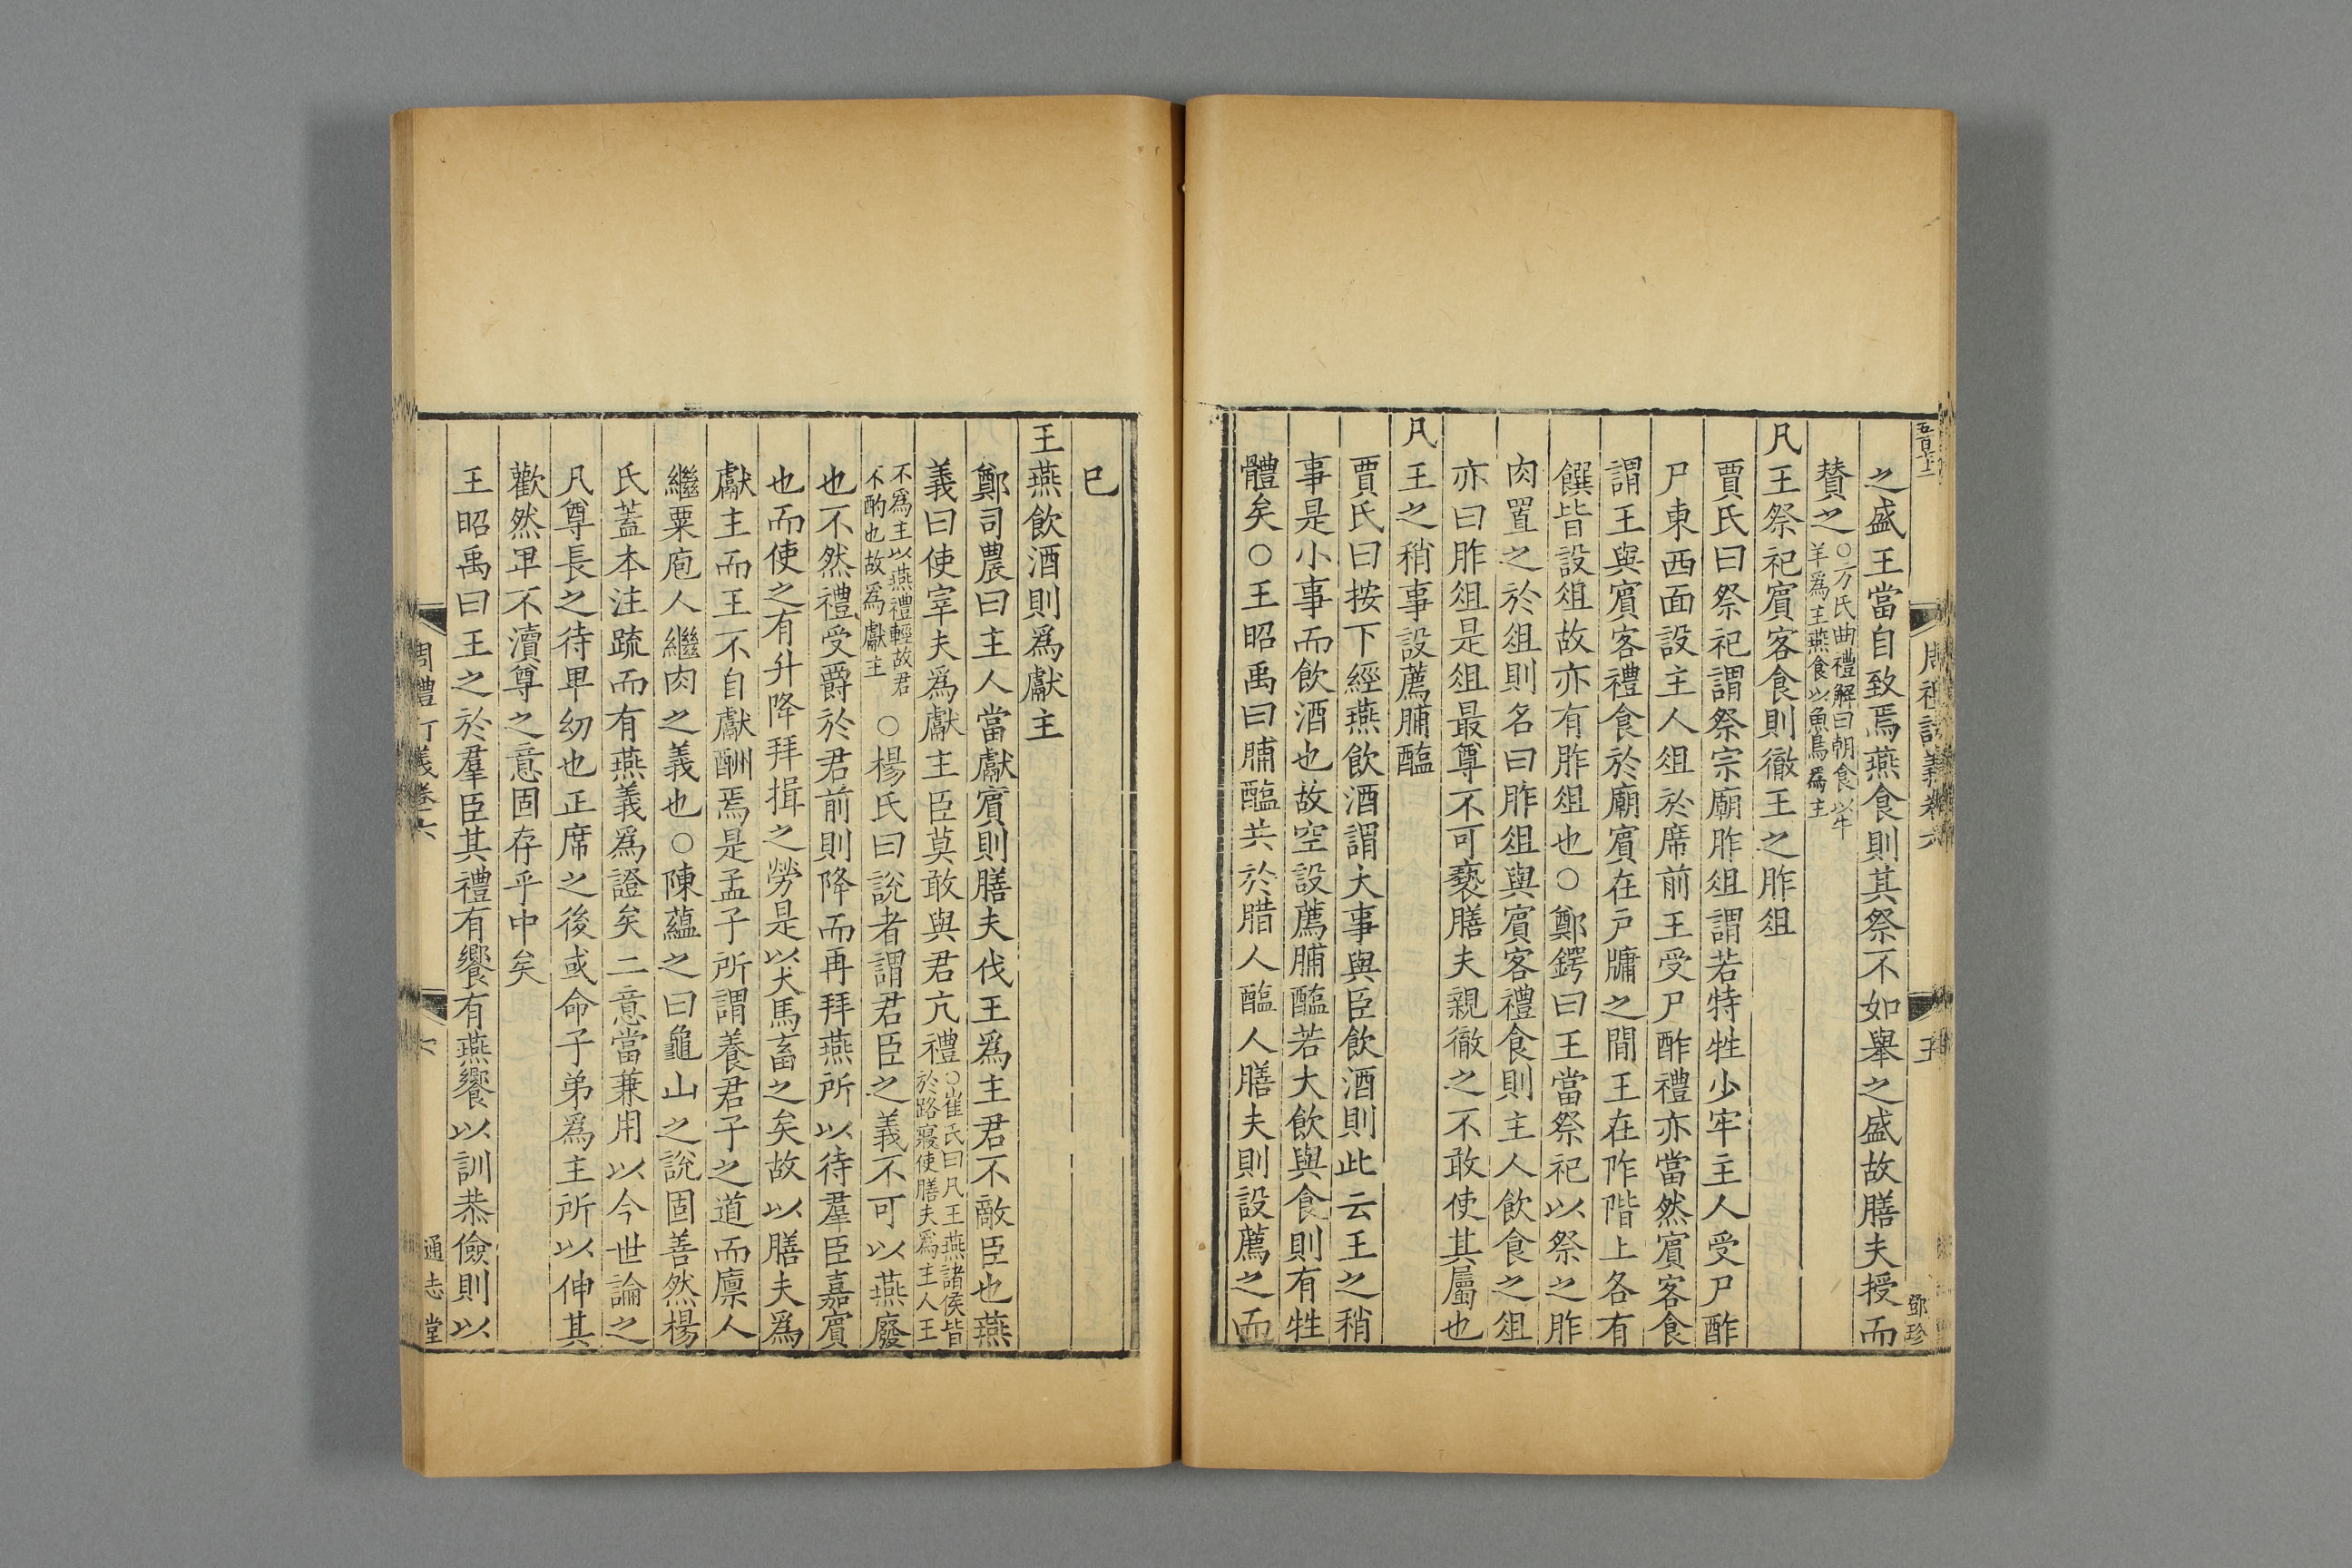 之盛王當自致焉燕食則其祭不如舉之盛故膳夫授而
贊之○方氏曲禮解曰朝食以牛羊爲主燕食以魚鳥爲主
凡王祭祀賓客食則徹王之胙俎
賈氏曰祭祀謂祭宗廟胙俎謂若特牲少牢主人受尸酢
尸東西面設主人俎於席前王受尸酢禮亦當然賓客食
謂王與賓客禮食於廟賓在戶牖之間王在阼階上各有
饌皆設俎故亦有胙俎也○鄭鍔曰王當祭祀以祭之胙
肉置之於俎則名曰胙俎與賓客禮食則主人飲食之俎
亦曰胙俎是俎最尊不可褻膳夫親徹之不敢使其屬也
凡王之稍事設薦脯醢
賈氏曰按下經燕飲酒謂大事與臣飲酒則此云王之稍
事是小事而飲酒也故空設薦脯醢若大飲與食則有牲
體矣○王昭禹曰脯醢共於腊人醢人膳夫則設薦之而
鄧珍
已
王燕飲酒則爲獻主
鄭司農曰主人當獻賓則膳夫代王爲主君不敵臣也燕
義曰使宰夫爲獻主臣莫敢與君亢禮○崔氏曰凡王燕諸侯皆於路寢使膳夫爲主人王
不爲主以燕禮輕故君不酌也故爲獻主○楊氏曰說者謂君臣之義不可以燕廢
也不然禮受爵於君前則降而再拜燕所以待羣臣嘉賓
也而使之有升降拜揖之勞是以犬馬畜之矣故以膳夫爲
獻主而王不自獻酬焉是孟子所謂養君子之道而廪人
繼粟庖人繼肉之義也○陳蘊之曰龜山之說固善然楊
氏蓋本注疏而有燕義爲證矣二意當兼用以今世論之
凡尊長之待卑幼也正席之後或命子弟爲主所以伸其
歡然卑不瀆尊之意固存乎中矣
王昭禹曰王之於羣臣其禮有饗有燕饗以訓恭儉則以
周禮訂義卷六
通志堂